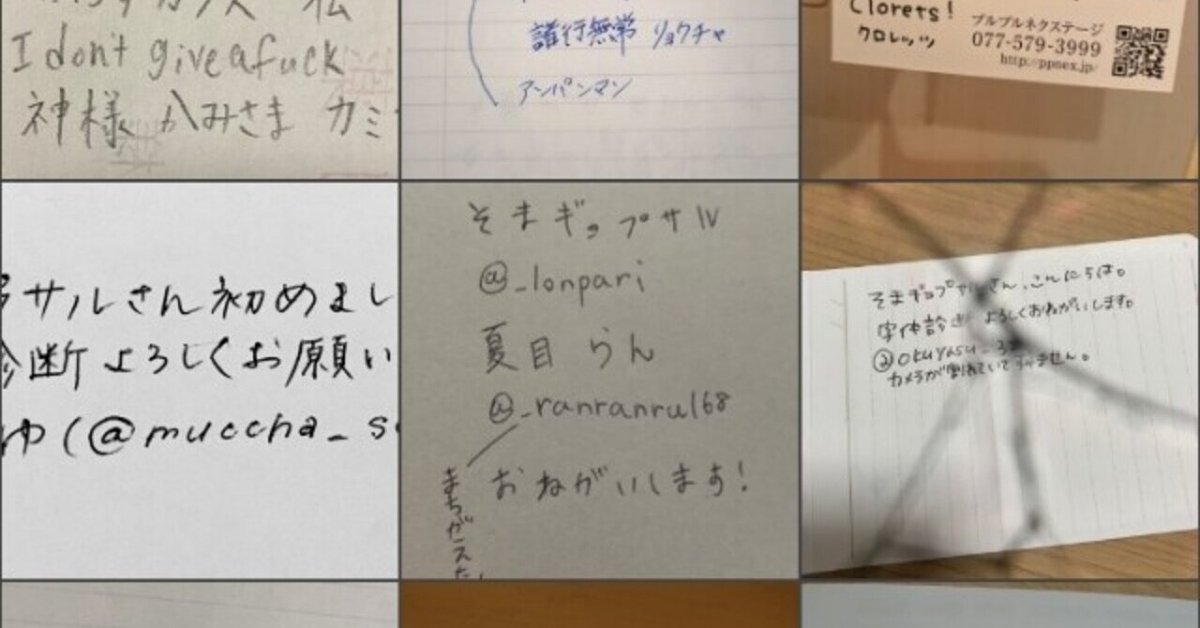 I don't give a fuck
神様 かみさま カミ
諸行無常 リョクチャ
アンパンマン
Clorets!
クロレッツ
プルプルネクステージ
077-579-3999
http://ppnex.jp/
サルさん初めまし
診断よろしくお願い
ゆ(@muccha_s
そまギョプサル
@_lonpari
夏目らん
@_ranranru168
おねがいします!
まちがえた
そまギョプサルさん、こんにちは。
字体診断 よろしくおねがいします。
@okuyasu_3
カメラが割れていてすみません。